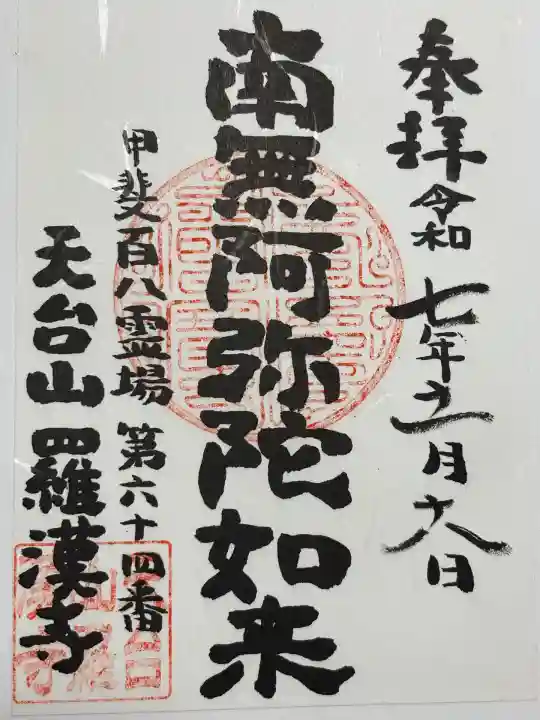 奉拝 令和七年十一月十八日
南無阿弥陀如来
甲斐百八霊場 第六十四番
天台山 羅漢寺